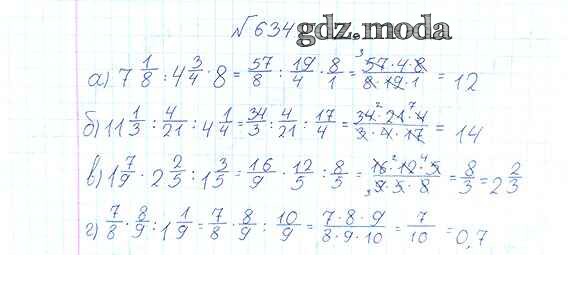 №634
gdz.moda
а) 7 1/8 : 4 3/4 · 8 = 57/8 : 19/4 · 8/1 = 57·4·8/8·19·1 = 12
б) 11 1/3 : 4/21 : 4 1/4 = 34/3 : 4/21 : 17/4 = 34·21·4/3·4·17 = 14
в) 1 7/9 · 2 2/5 : 1 3/5 = 16/9 · 12/5 : 8/5 = 16·12·5/9·5·8 = 8/3 = 2 2/3
г) 7/8 · 8/9 : 1 1/9 = 7/8 · 8/9 : 10/9 = 7·8·9/8·9·10 = 7/10 = 0,7